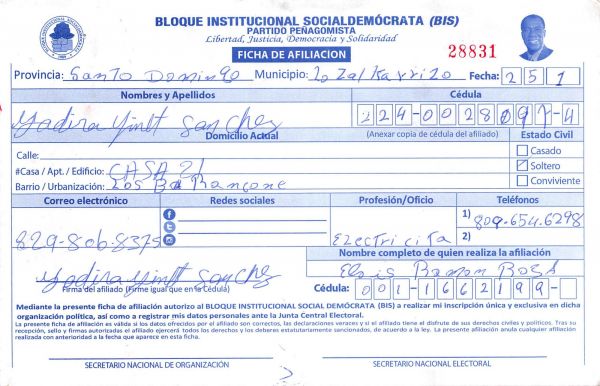 BLOQUE INSTITUCIONAL SOCIALDEMÓCRATA (BIS)
PARTIDO PEÑAGOMISTA
Libertad, Justicia, Democracia y Solidaridad
FICHA DE AFILIACION
28831
Provincia: Santo Domingo Municipio: Fecha: 2 5 1
Nombres y Apellidos Cédula
Yadira Sanchez 224-0028097-4
Domicilio Actual (Anexar copia de cédula del afiliado) Estado Civil
Calle: Casado
#Casa / Apt. / Edificio: CASA 21 Soltero
Barrio / Urbanización: Los Conviviente
Correo electrónico Redes sociales Profesión/Oficio Teléfonos
1) 809-654-6298
829-806-8375 Electricita 2)
Nombre completo de quien realiza la afiliación
Yadira Sanchez
Firma del afiliado (Firme igual que en la Cédula) Cédula: 001-1662199-
Mediante la presente ficha de afiliación autorizo al BLOQUE INSTITUCIONAL SOCIAL DEMÓCRATA (BIS) a realizar mi inscripción única y exclusiva en dicha
organización política, así como a registrar mis datos personales ante la Junta Central Electoral.
La presente ficha de afiliación es válida si los datos ofrecidos por el afiliado son correctos, las declaraciones veraces y si el afiliado tiene el disfrute de sus derechos civiles y políticos. Tras su
recepción, sello y firmas autorizadas el afiliado ejercerá todos los derechos y los deberes estatutariamente sancionados, de acuerdo a la ley. La presente afiliación anula cualquier afiliación
realizada con anterioridad a la fecha que aparece en esta ficha.
SECRETARIO NACIONAL DE ORGANIZACIÓN SECRETARIO NACIONAL ELECTORAL